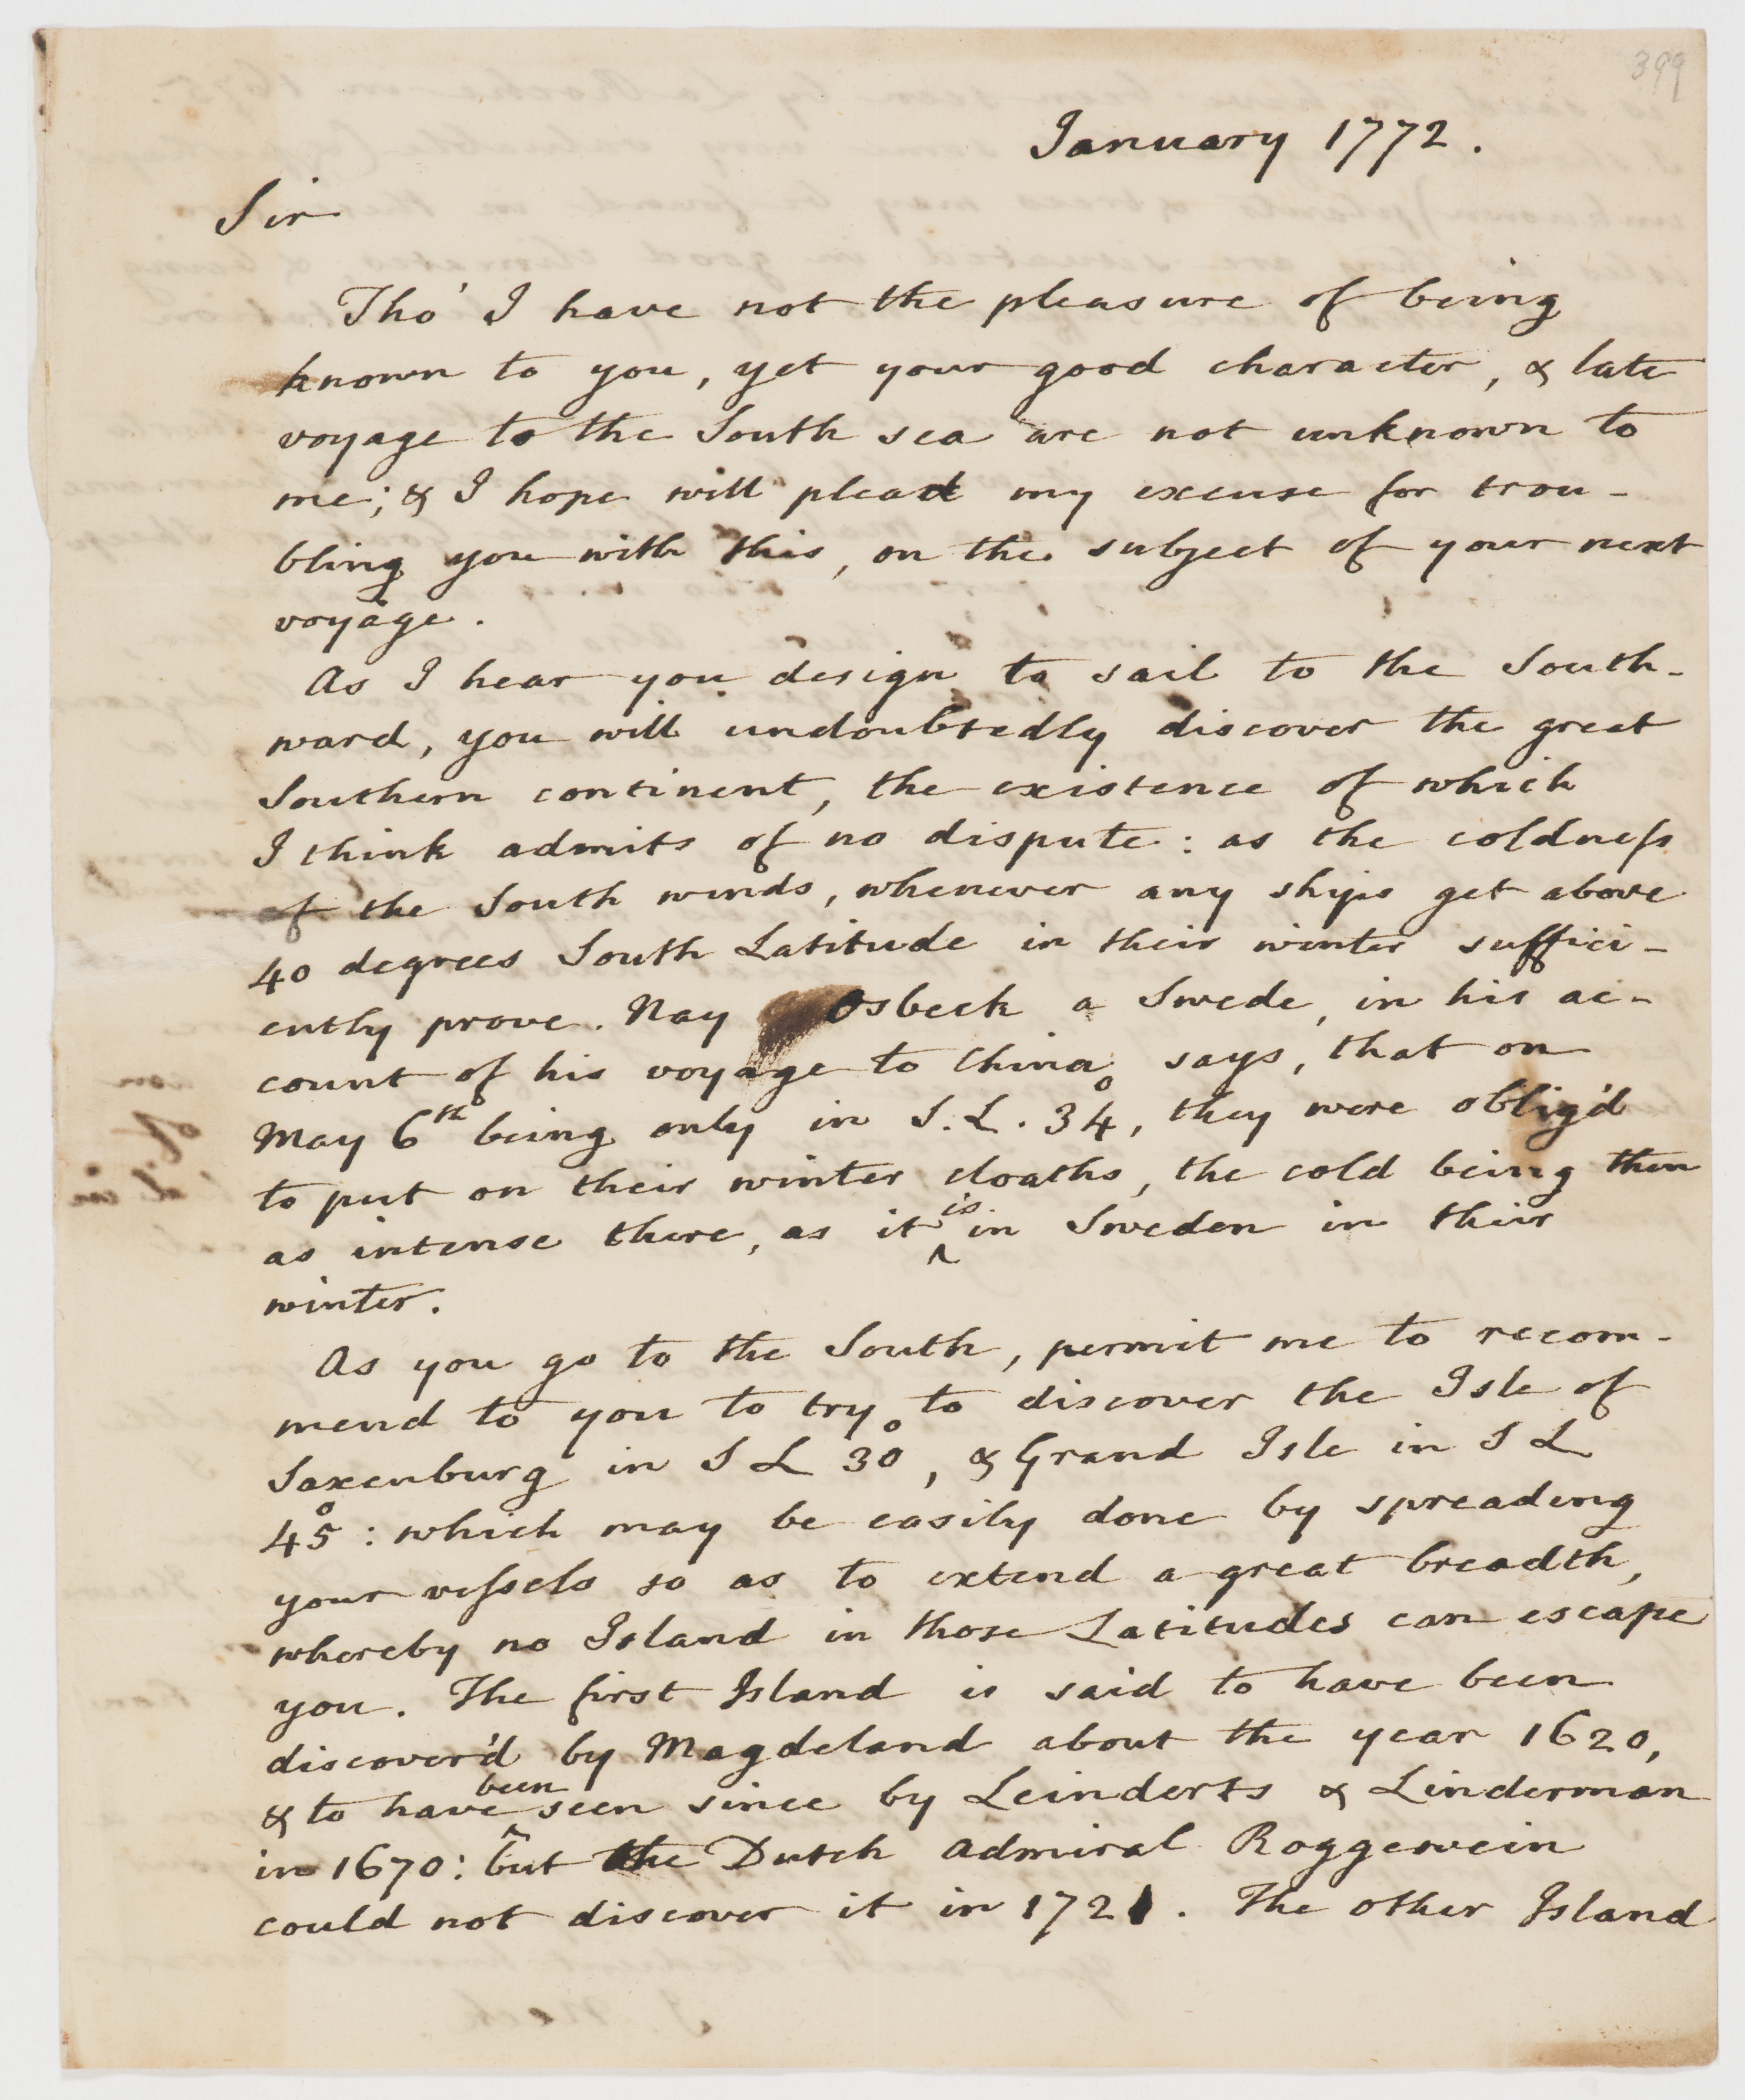 399
January 1772.
Sir
Tho' I have not the pleasure of being
known to you, yet your good character, & late
voyage to the South sea are not unknown to
me; & I hope will plead my excuse for trou-
bling you with this, on the subject of your next
voyage.
As I hear you design to sail to the South-
ward, you will undoubtedly discover the great
Southern continent, the existence of which
I think admits of no dispute: as the coldneſs
of the South winds, whenever any ships get above
40 degrees South Latitude in their winter suffici-
ently prove. Nay Osbeck a Swede, in his ac-
count of his voyage to China says, that on
May 6th being only in S.L. 34°, they were oblig'd
to put on their winter cloaths, the cold being then
as intense there, as it is in Sweden in their
winter.
As you go to the South, permit me to recom-
mend to you to try to discover the Isle of
Saxenburg in S L 30°, & Grand Isle in S L
45°: which may be easily done by spreading
your veſsels so as to extend a great breadth,
whereby no Island in those Latitudes can escape
you. The first Island is said to have been
discover'd by Magdeland about the year 1620,
& to have been seen since by Leinderts & Linderman
in 1670: but the Dutch Admiral Roggewein
could not discover it in 1721. The other Island